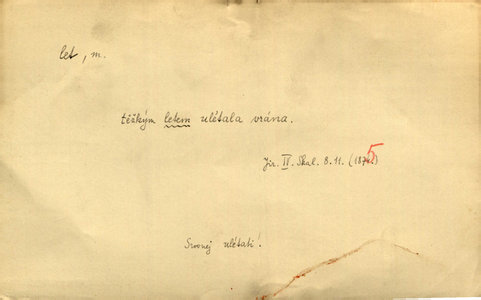 let, m.
těžkým letem ulétala vrána.
Jir. IV. Skal. 8. 11. (1875)
Srovnej ulétati!